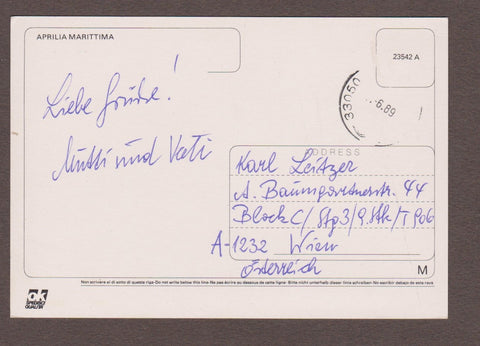 APRILIA MARITTIMA
23542 A
33050
.6.89
Liebe Grüße!
Mutti und Vati
ADDRESS
Karl Leitzer
A. Baumgartnerstr. 44
Block C/Stg3/9.Stk/T906
A-1232 Wien
Österreich
M
Non scrivere al di sotto di questa riga-Do not write below this line-Ne pas écrire au dessous de cette ligne-Bitte nicht unterhalb dieser Linie schreiben-No escribir debajo de esta raya